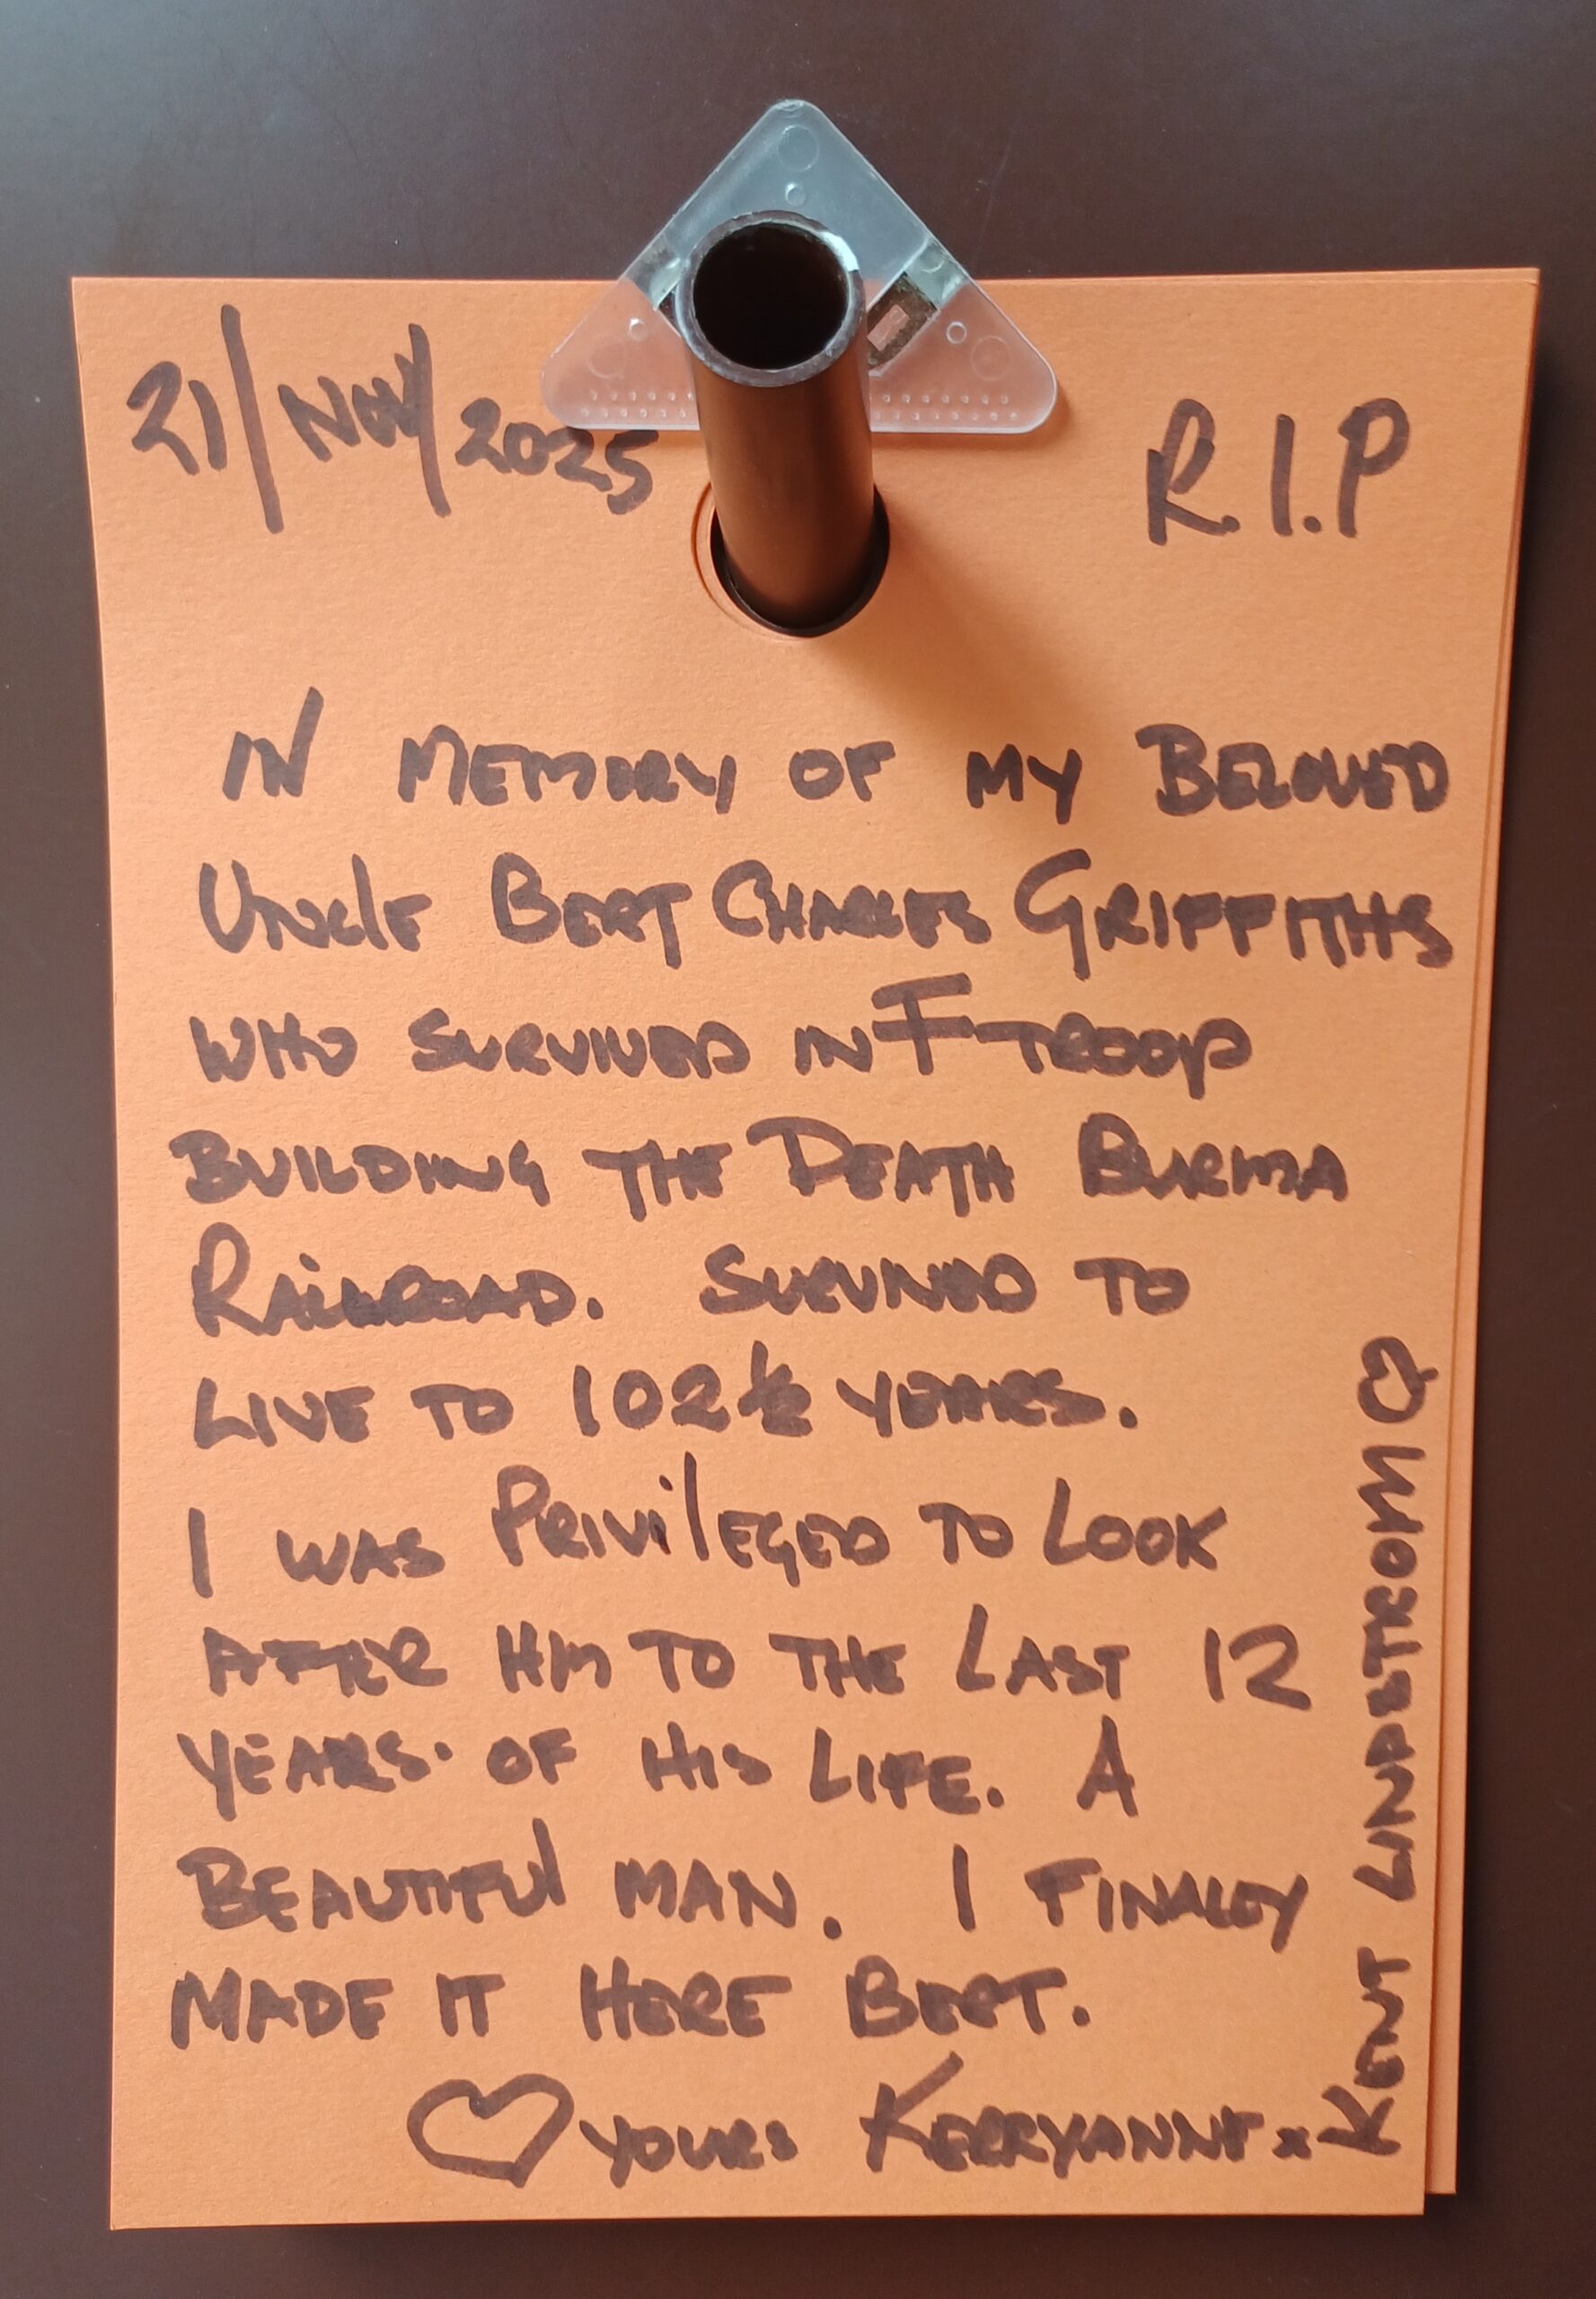 21/NOV/2025
R.I.P
IN MEMORY OF MY BELOVED
UNCLE BERT CHARLES GRIFFITHS
WHO SURVIVED IN F-TROOP
BUILDING THE DEATH BURMA
RAILROAD. SURVIVED TO
LIVE TO 102½ YEARS.
I WAS PRIVILEGED TO LOOK
AFTER HIM TO THE LAST 12
YEARS. OF HIS LIFE. A
BEAUTIFUL MAN. I FINALLY
MADE IT HERE BERT.
♡ YOURS KERRYANNE x
KENT LINDSTROM ♡